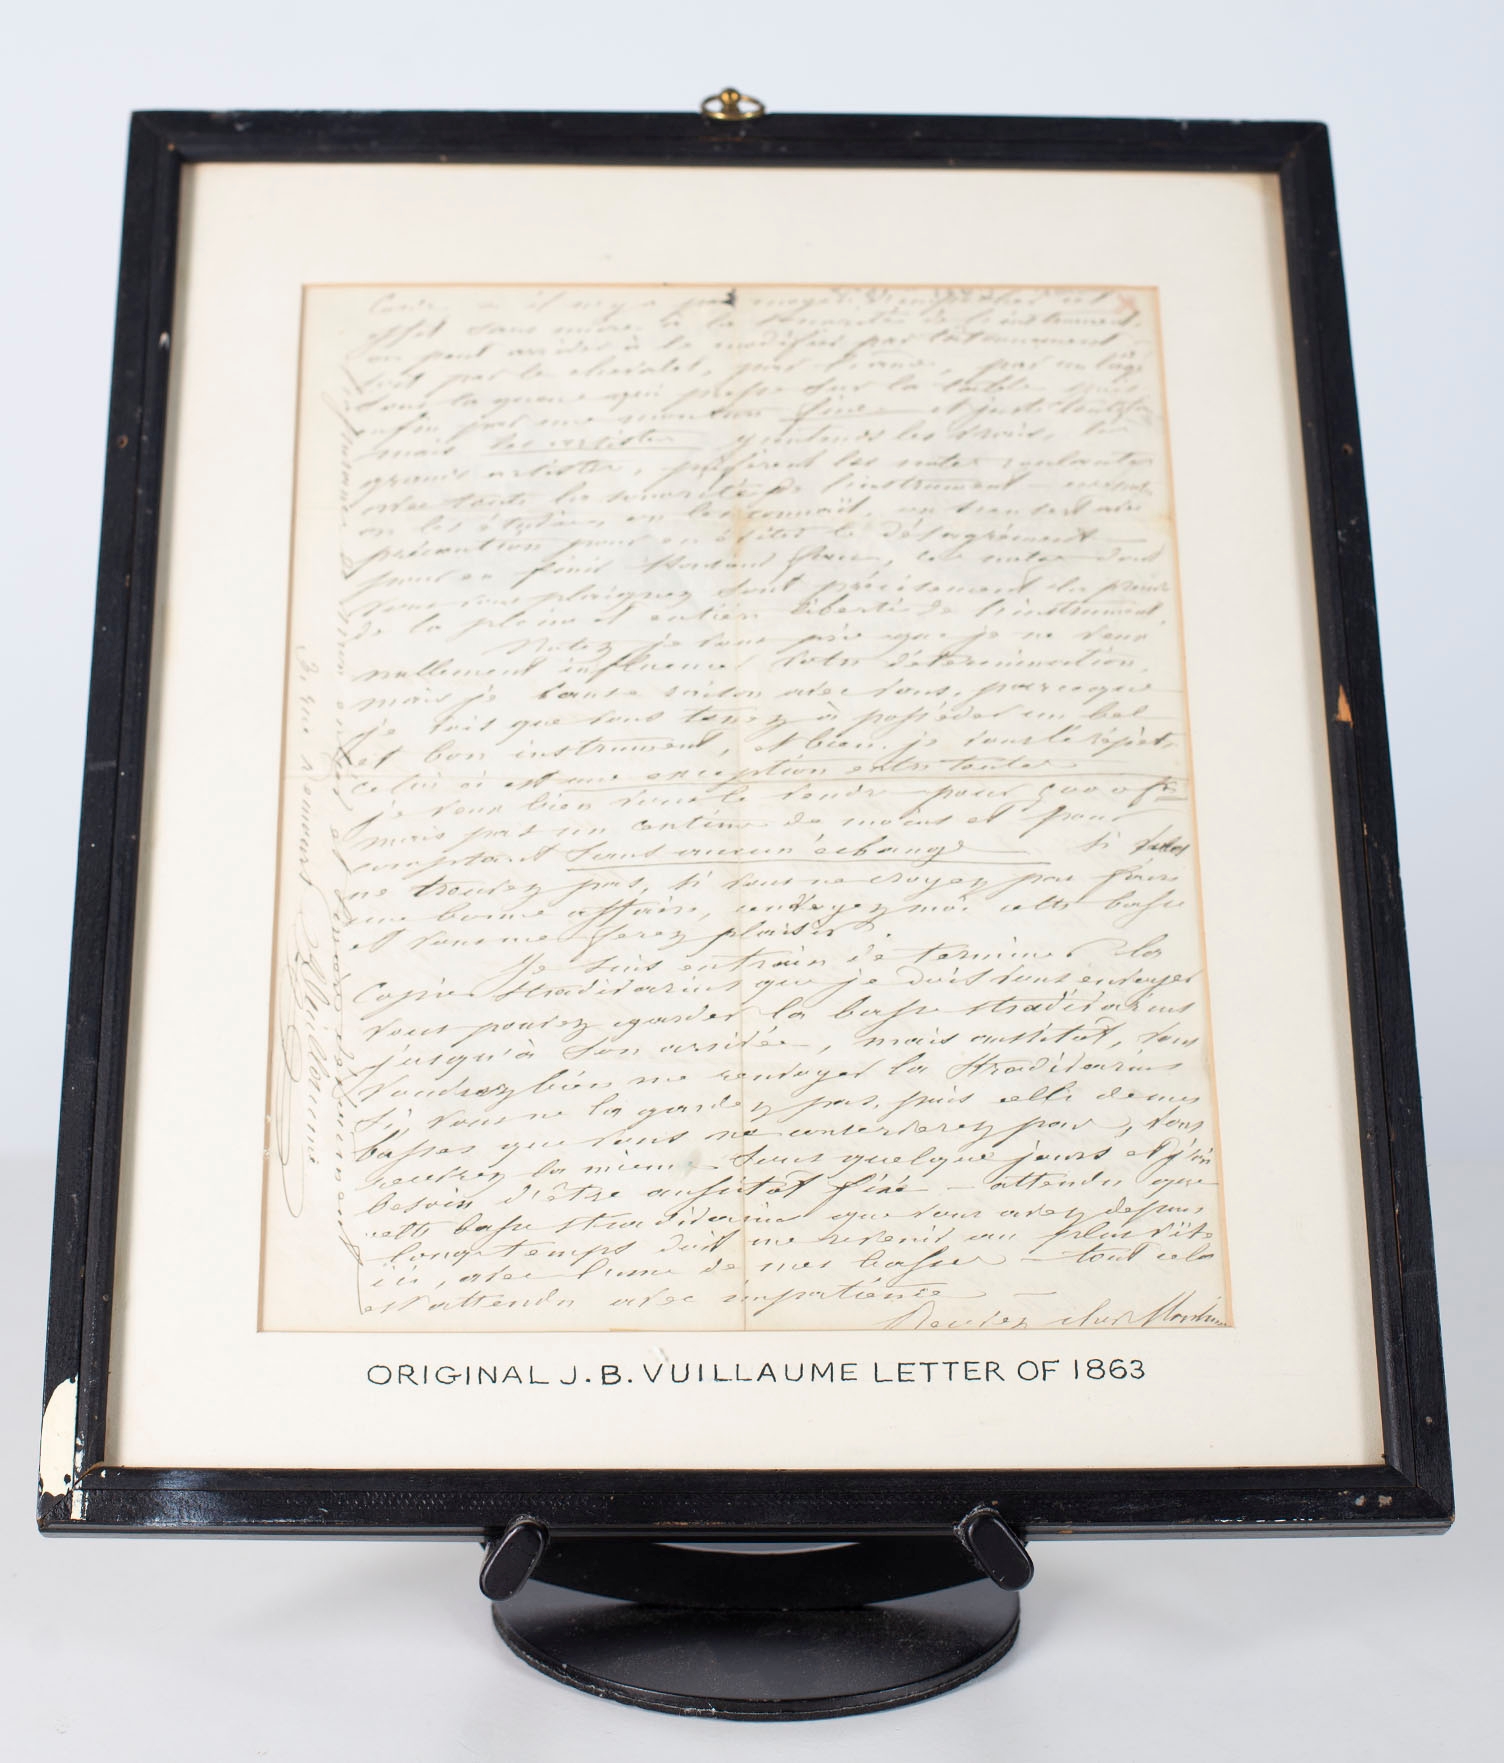 effet sans nuire à la sonorité de l'instrument,
on peut arriver à le modifier par
soit par le chevalet, par l'âme, par un
sous la queue qui presse sur la table
enfin par une
mais les artistes j'entends les vrais, les
grands artistes, préfèrent les notes roulantes
avec toute la sonorité de l'instrument
on les étudie, on les connaît, on s'en sert avec
précaution pour en éviter le désagrément
pour en finir Monsieur, ces notes dont
vous vous plaignez sont précisément la preuve
de la pleine et entière liberté de l'instrument.
Notez je vous prie que je ne veux
nullement influencer votre détermination.
mais je cause raison avec vous, parceque
je vois que vous tenez à posséder un bel
et bon instrument, et bien je vous le répète
celui ci est une exception entre toutes
je veux bien vous le vendre pour fr
mais pas un centime de moins et pour
comptant sans aucun échange si vous
ne trouvez pas, si vous ne croyez pas faire
une bonne affaire, envoyez moi cette basse
et vous me ferez plaisir.
Je suis en train de terminer la
Copie Stradivarius que je dois vous envoyer
vous pouvez garder la basse Stradivarius
jusqu'à son arrivée, mais aussitôt, vous
voudrez bien me renvoyer la Stradivarius
si vous ne la gardez pas, puis celle de mes
basses que vous ne conserverez pas, vous
recevrez la mienne sous quelque jours et j'ai
besoin d'être aussitôt fixé – attendu que
cette basse Stradivarius que vous avez depuis
longtemps doit me revenir au plus vite
ici, avec l'une de mes basses – tout cela
est attendu avec impatience
Recevez cher Monsieur
l'assurance de mon entier et sincère dévouement
JB Vuillaume
ORIGINAL J.B. VUILLAUME LETTER OF 1863